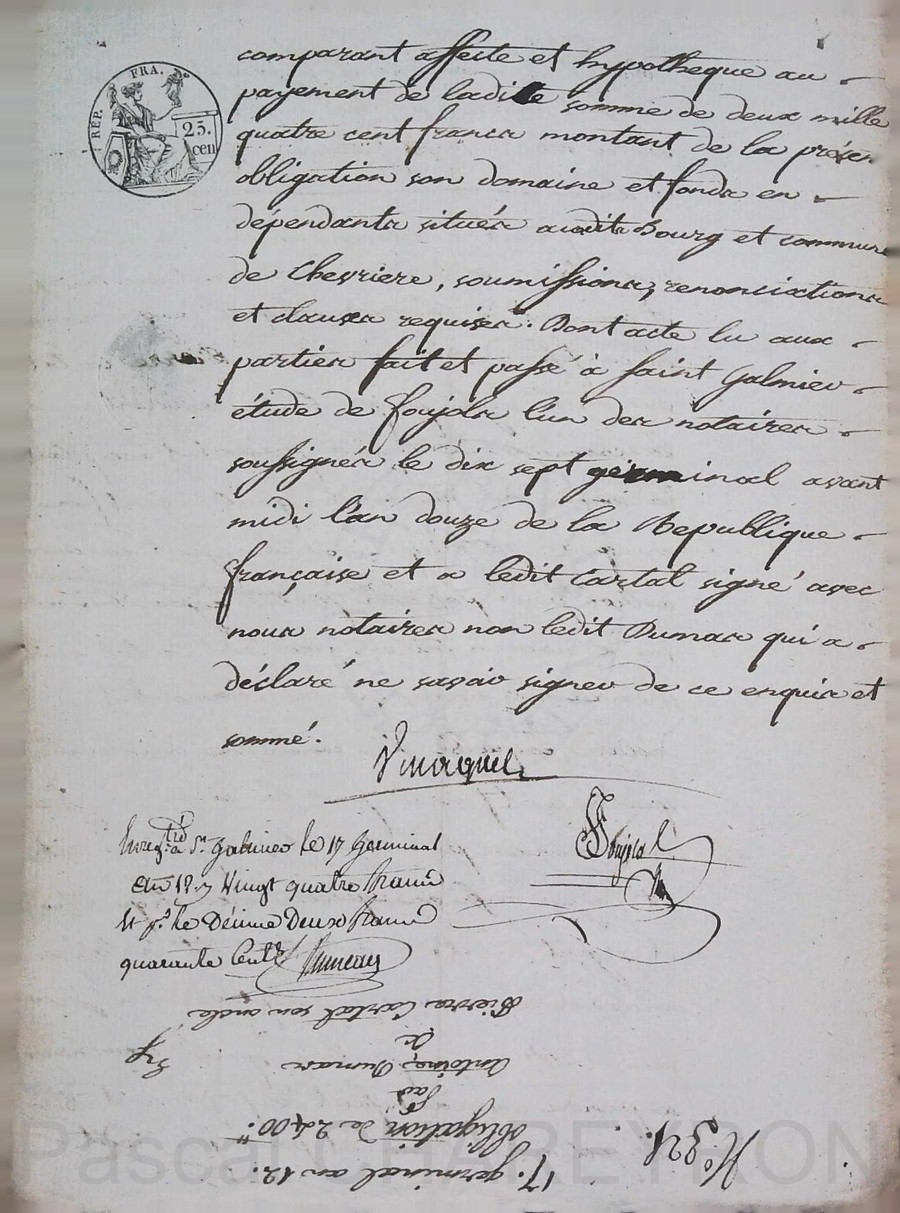 RÉP. FRA.
25.
cen
comparant affecte et hypotheque au
payement de ladite somme de deux mille
quatre cent francs montant de la présen
obligation son domaine et fonds en
dépendants situés audit Bourg et commune
de Chevriere, soumissions, renonciations
et clauses requises. Dont acte lu aux
parties fait et passé à Saint Galmier
étude de Foujols l'un des notaires
soussignés le dix sept germinal avant
midi l'an douze de la Republique
française et a ledit Cartal signé avec
nous notaires non ledit Dumas qui a
déclaré ne savoir signer de ce enquis et
sommé.
Foujols
Enreg.tré à St Galmier le 17 Germinal
an 12 Vingt quatre francs
et p.r le Décime Deux francs
quarante Cent.
17. germinal an 12.
obligation de 2400.
par
antoine Dumas
à
Pierre Cartal son oncle
N.o 321.
Pascal CHAREYRON